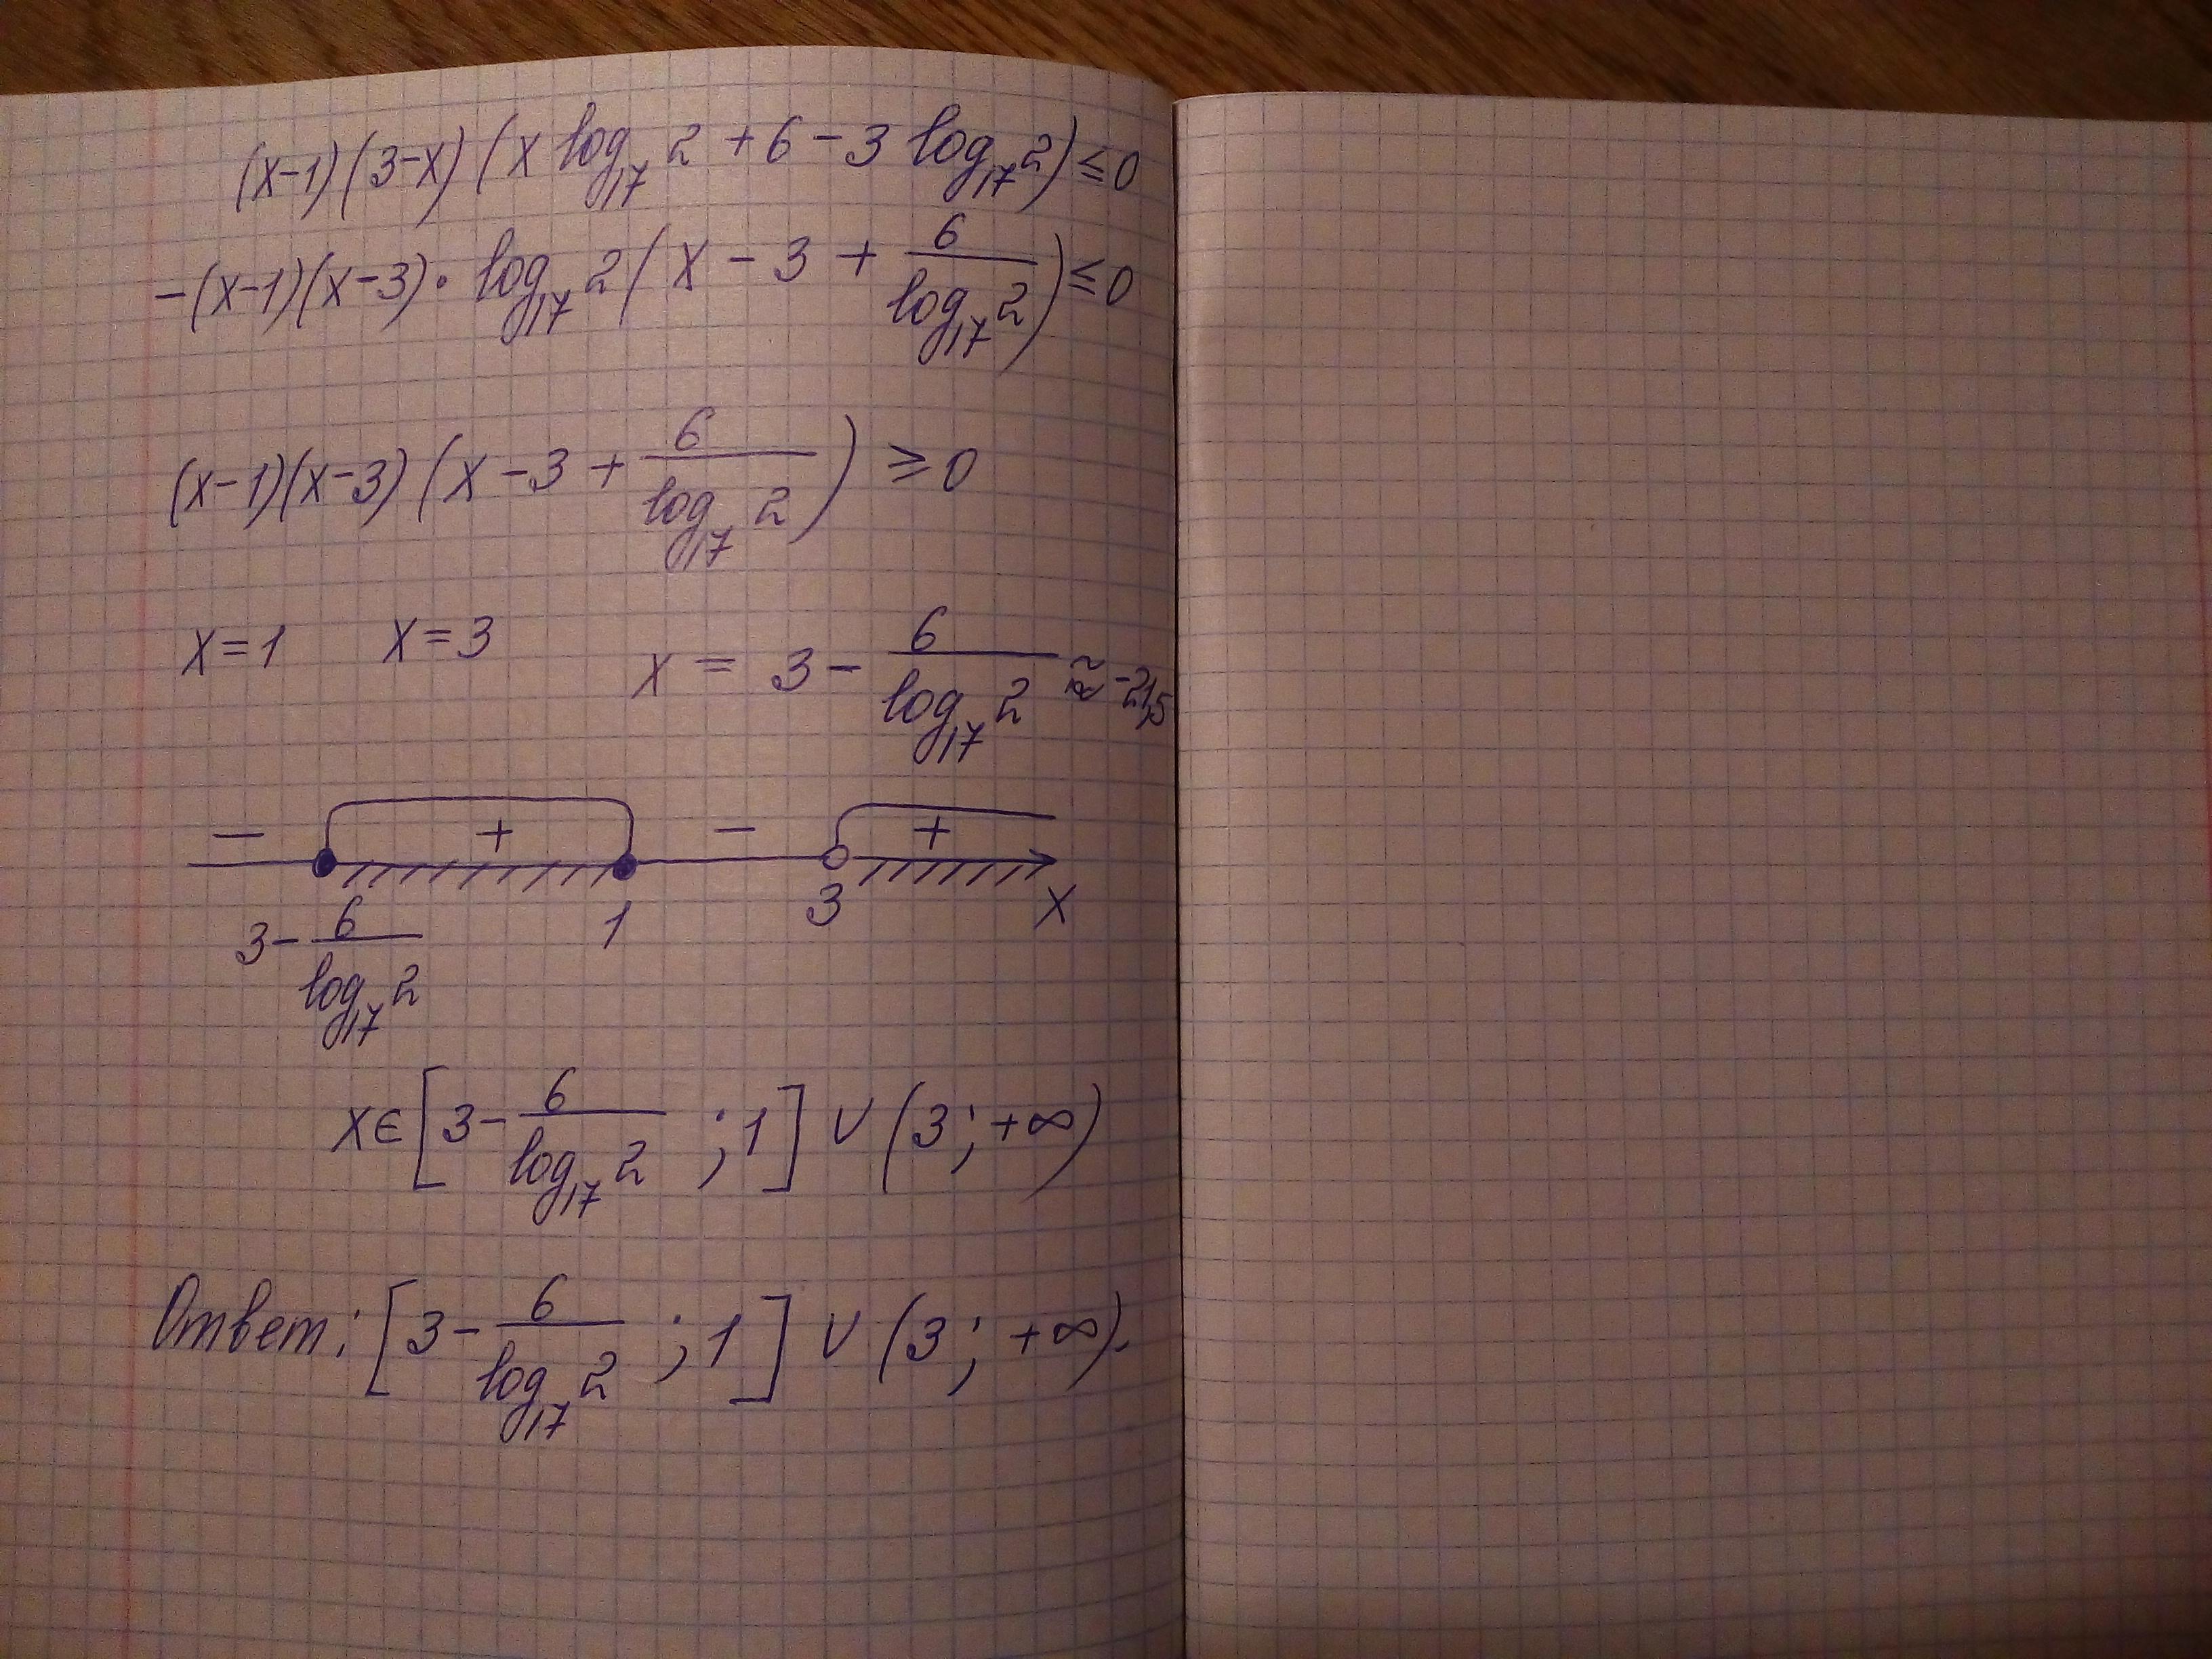 (x-1)(3-x)(x log₁₇ 2 + 6 - 3 log₁₇ 2) ≤ 0
-(x-1)(x-3) · log₁₇ 2 (x - 3 + 6/log₁₇ 2) ≤ 0
(x-1)(x-3)(x - 3 + 6/log₁₇ 2) ≥ 0
x=1 x=3 x = 3 - 6/log₁₇ 2 ≈ -21,5
- + - +
3 - 6/log₁₇ 2 1 3 x
x∈[3 - 6/log₁₇ 2 ; 1] ∪ (3; +∞)
Ответ: [3 - 6/log₁₇ 2 ; 1] ∪ (3; +∞).